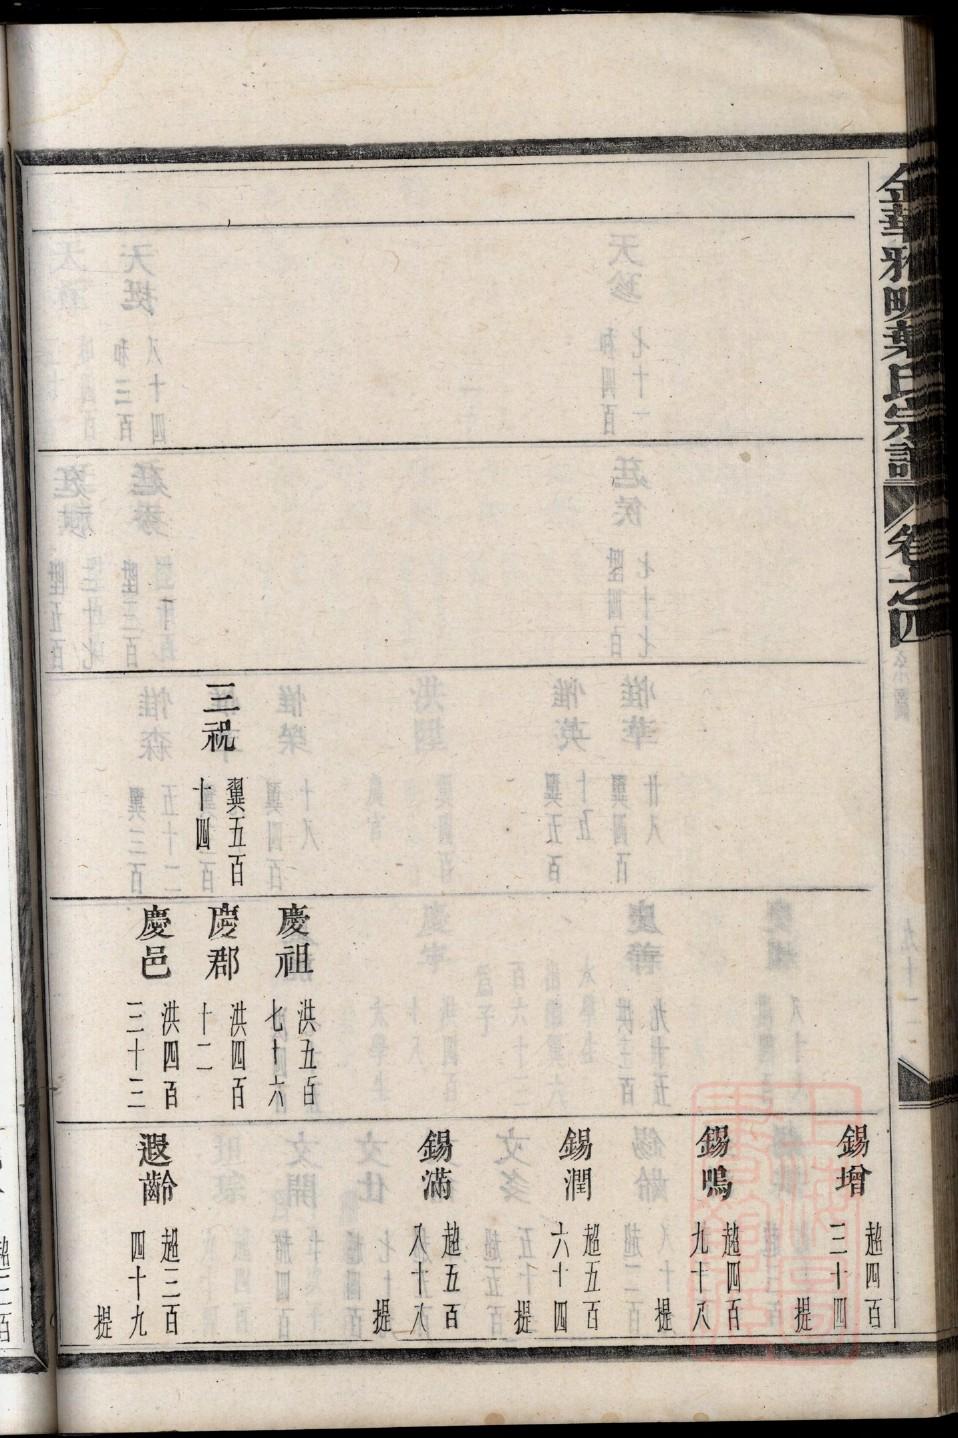 金華雅畈葉氏宗譜
卷之四
三祝
翼五百
十四
慶祖
洪五百
七十六
慶郡
洪四百
十二
慶邑
洪四百
三十三
錫增
趙四百
三十四
提
錫鳴
趙四百
九十八
提
錫潤
趙五百
六十四
提
錫滿
趙五百
八十八
提
遐齡
趙三百
四十九
提